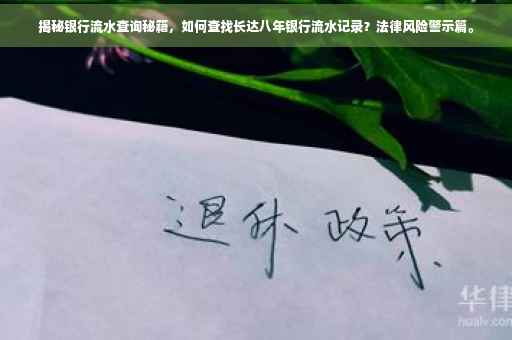 揭秘银行流水查询秘籍，如何查找长达八年银行流水记录？法律风险警示篇。
退休 政策
华律
hualv.com